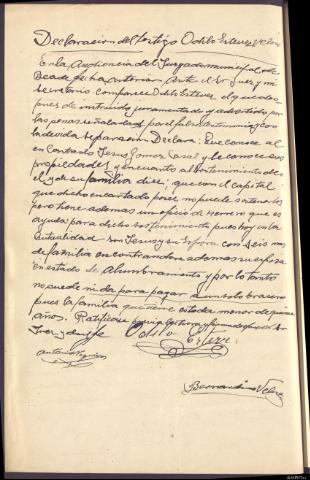 Declaracion del testigo Odilo Estevez Velo
En la Audiencia del Juzgado municipal de
Beade fecha anterior. Ante el Sr Juez y mi
Secretario comparece Odilo Estevez, el que des
pues de instruido juramentado y advertido por
las penas señaladas por el falso testimonio, con
la devida separasion Declara: Que conoce al
encartado Jesus Gomez Casal y le conoce sus
propiedades y encuanto al sostenimiento de
el y de su familia dice, que con el capital
que dicho encartado posee no puede sostenerlos
pero tiene ademas un oficio de que es
ayuda para dicho sostenimiento pues hoy en la
autualidad son Jesus y su esposa con seis mas
de familia encontrandose ademas su esposa
en estado de Alumbramiento y por lo tanto
no puede ni da para pagar a un solo bracero
pues la familia que tiene es toda menor de
años. Ratificase previa lectura y firma despues del Sr
Juez y doy fe
Odilo Estevez
Antonio
Bernardino Velo